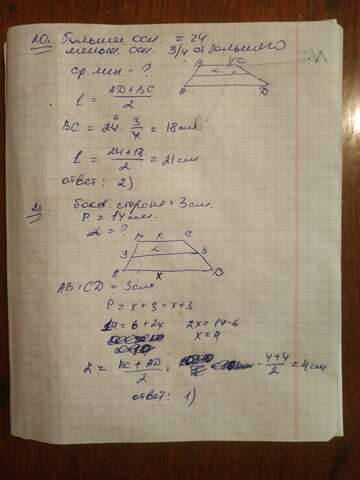 20. Большее осн. = 24
меньш. осн. 3/4 от большего
ср. мен - ?
B C
L
A D
L = AD + BC / 2
BC = 24 · 3/4 = 18 см.
6
L = 24 + 18 / 2 = 21 см
ответ: 2)
21. боков. сторона = 3 см.
P = 14 см.
L = ?
B x C
3 L 3
A x D
AB = CD = 3 см.
P = x + 3 + x + 3
14 = 6 + 2x 2x = 14 - 6
x = 4
L = BC + AD / 2 = 4 + 4 / 2 = 4 см
ответ: 1)